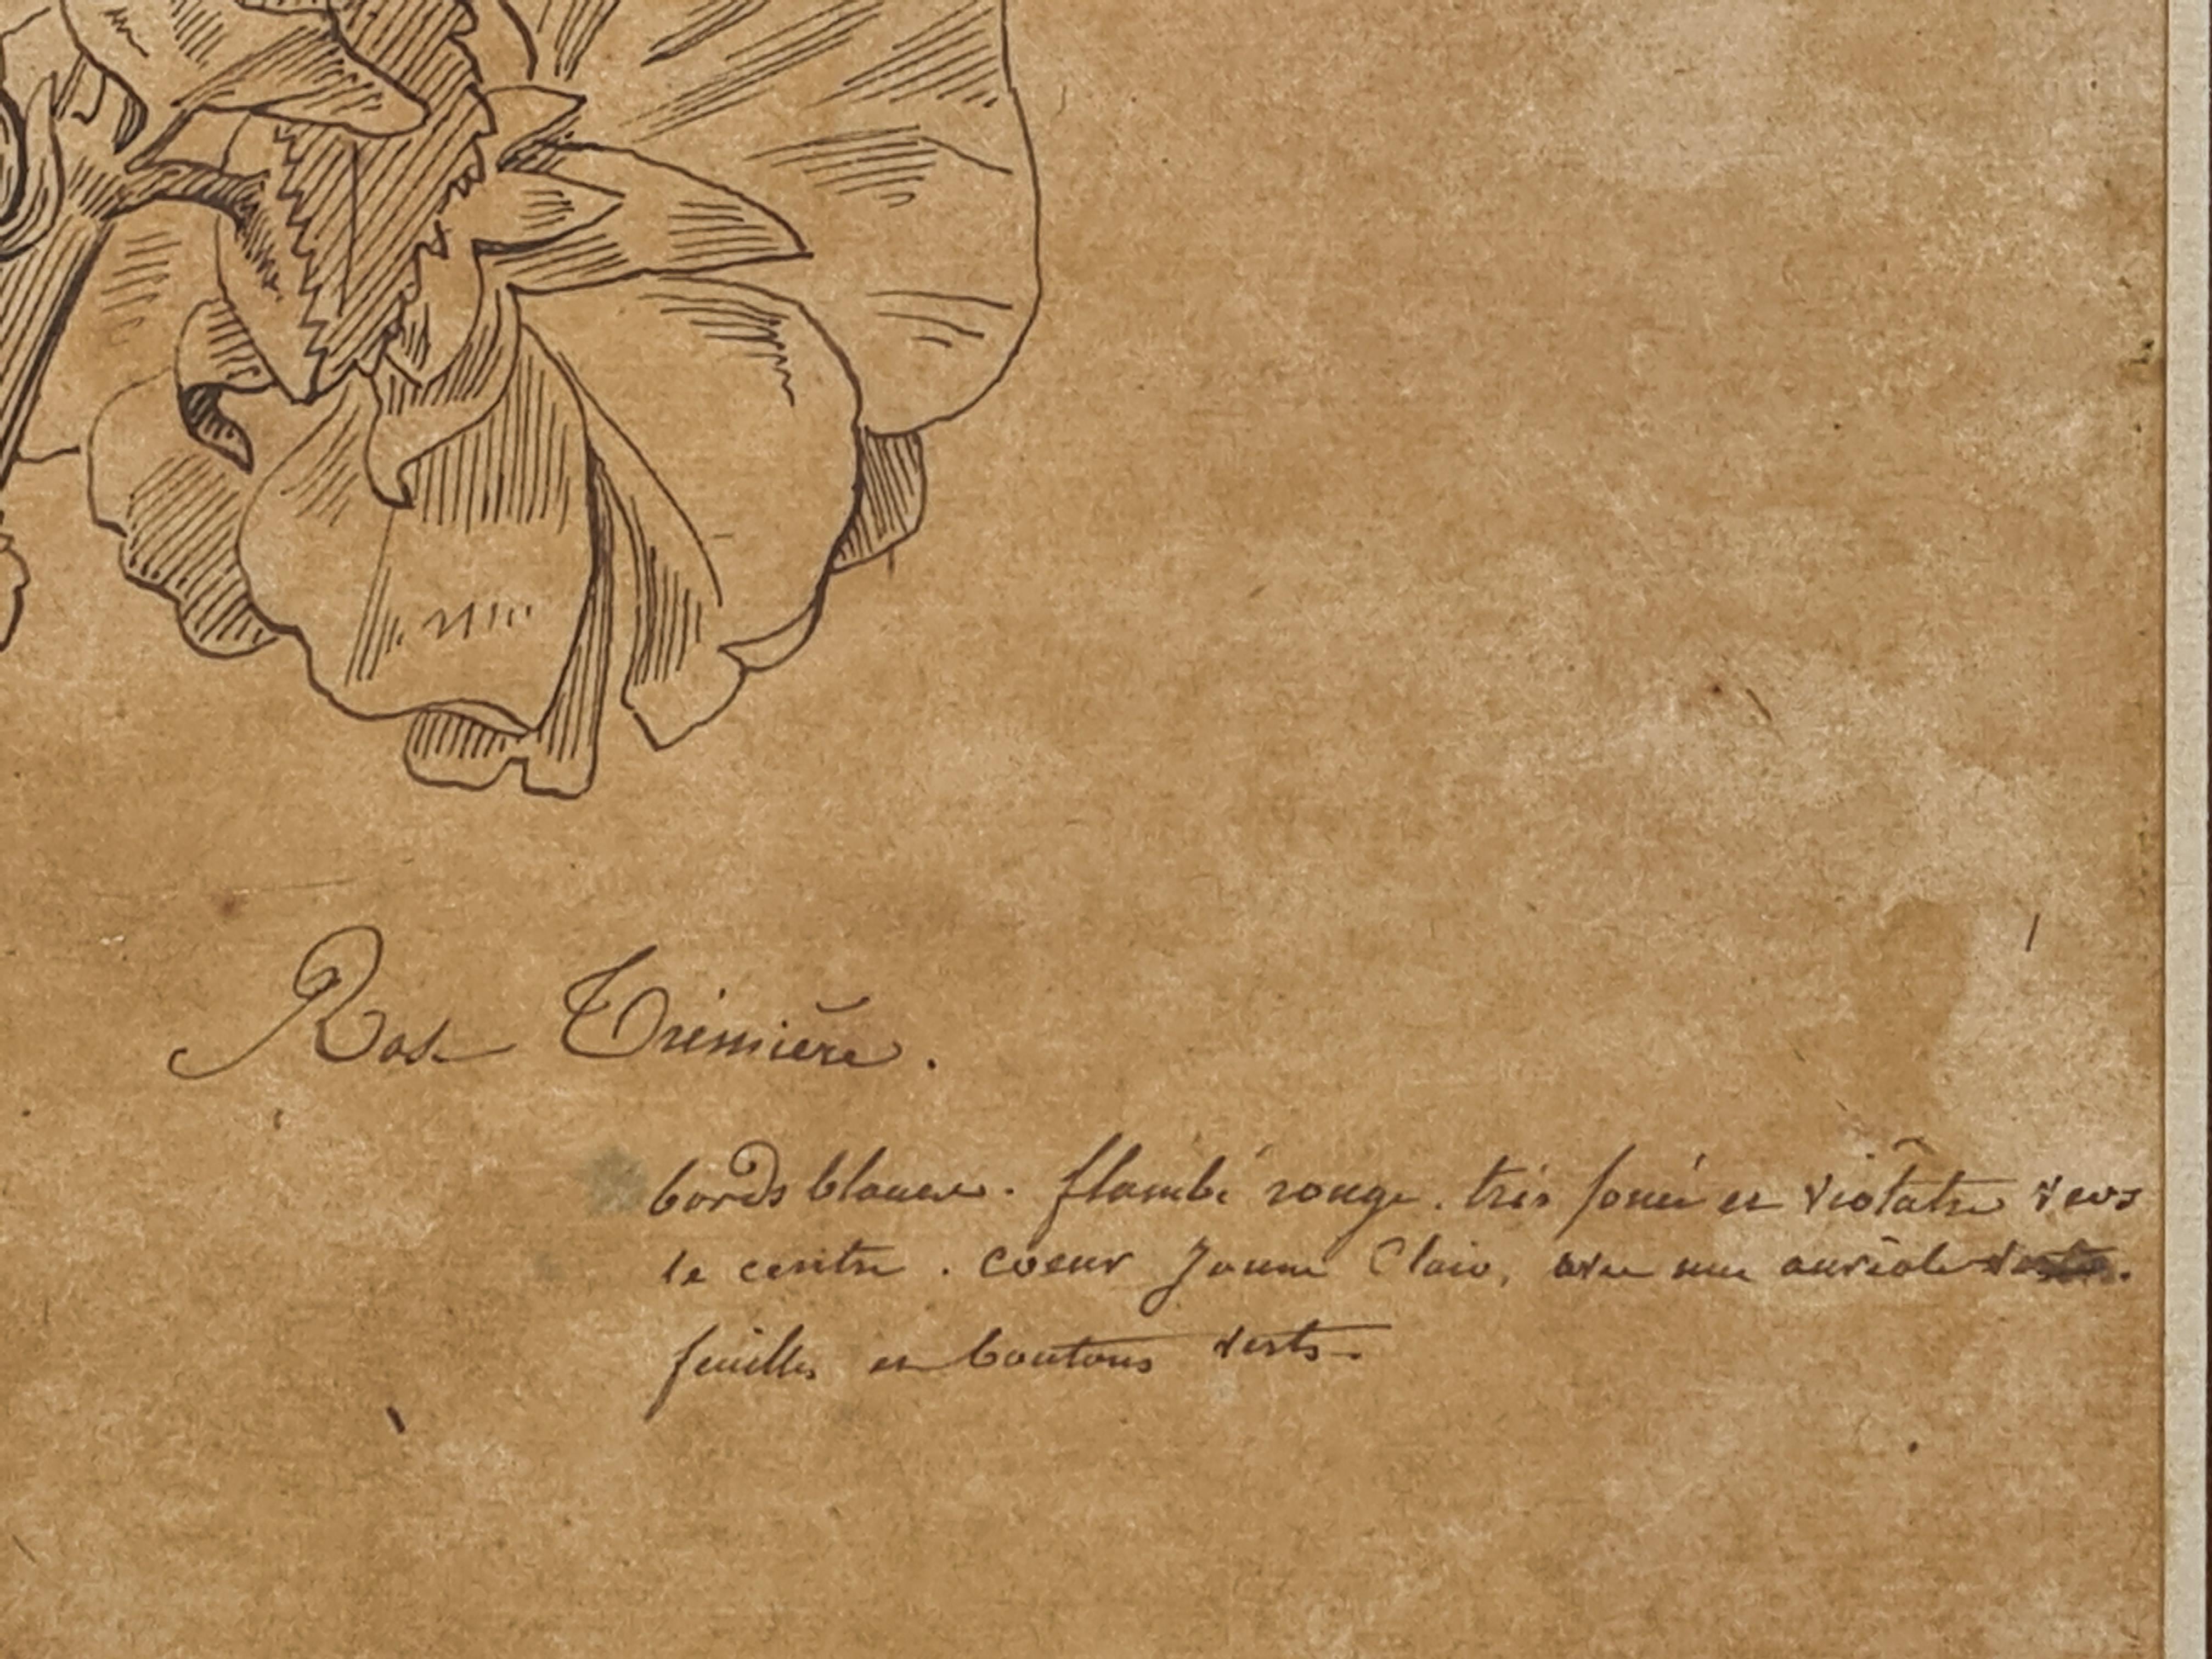 Rose Trémière.
bords blancs. flambé rouge. très foncé et violâtre vers
le centre. coeur jaune clair, avec une auréole verte.
feuilles et boutons verts.